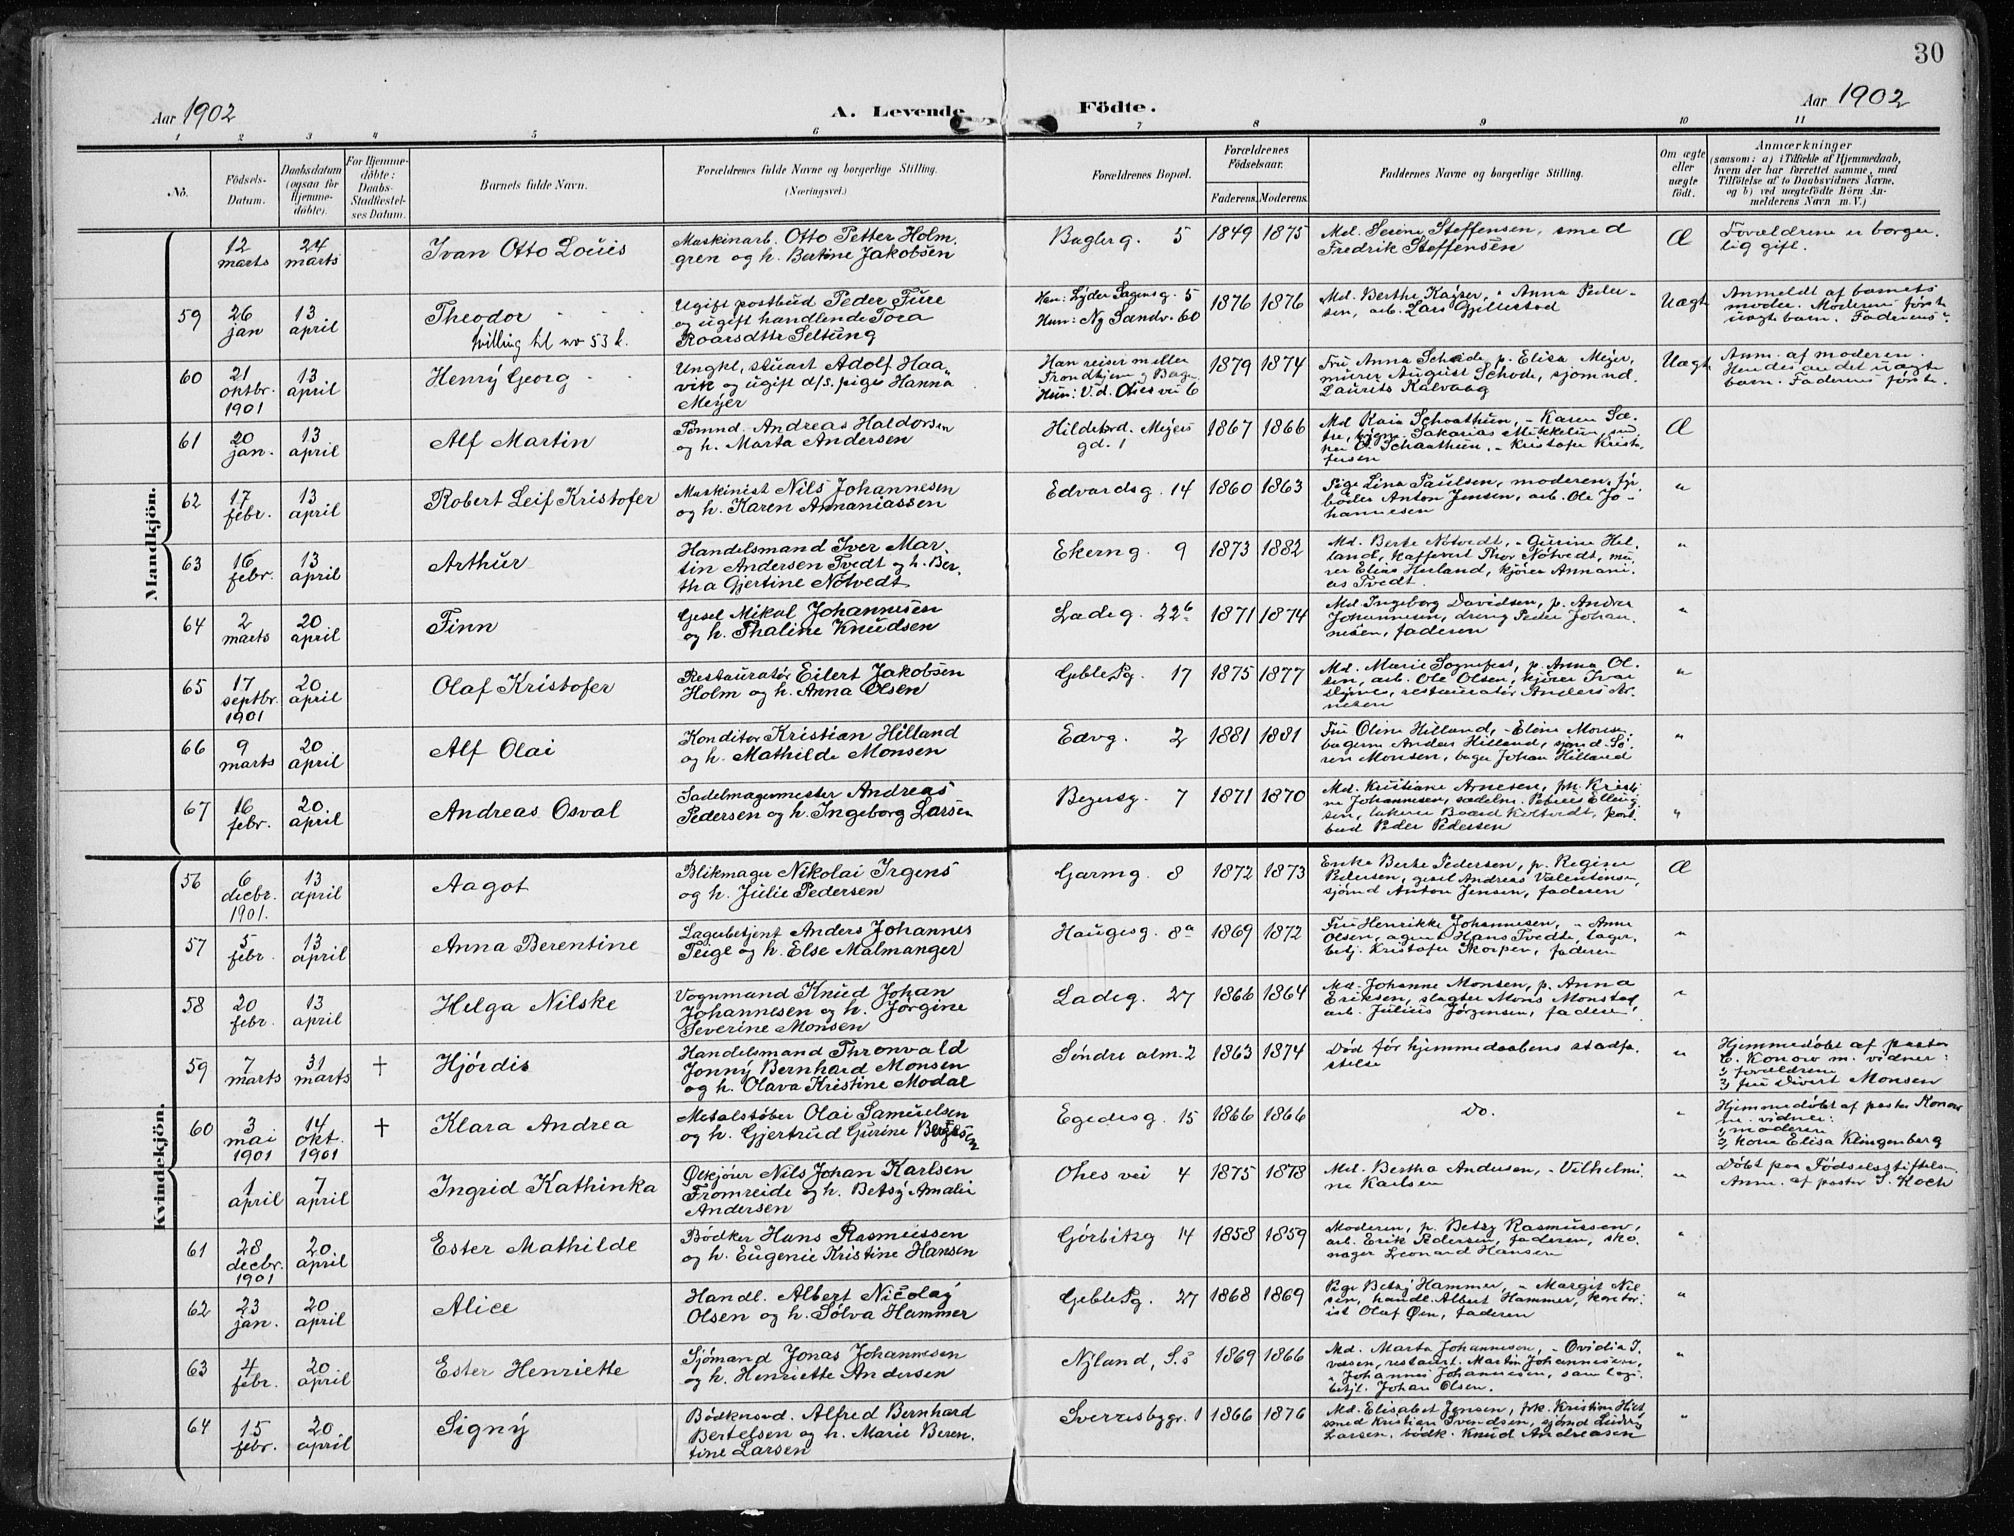 30
Aar 1902 A. Levende Födte. Aar 1902
1 2 3 4 5 6 7 8 9 10 11
No. Födsels-Datum. Daabsdatum (ogsaa for Hjemmedøbte). For Hjemmedöbte: Daabs-Stadfæstelses Datum. Barnets fulde Navn. Forældrenes fulde Navne og borgerlige Stilling. (Næringsvei.) Forældrenes Bopæl. Forældrenes Födselsaar. Faderens. Moderens. Faddernes Navne og borgerlige Stilling. Om ægte eller uægte födt. Anmærkninger (saasom: a) i Tilfælde af Hjemmedaab, hvem der har forrettet samme, med Tilföielse af to Daabsvidners Navne, og b) ved uægtefödte Börn Anmelderens Navn m. V.)
Mandkjön.
12 marts 24 marts Ivan Otto Louis
Maskinarb. Otto Petter Holm-
gren og h. Bertine Jakobsen
Bagerg. 5 1849 1875
Md. Serine Steffensen, smed
Fredrik Steffensen
Æ
Forældrene er borger-
lig gift.
59 26 jan 13 april Theodor
tvilling til no 53 k.
Ugift postbud Peder Fure
og ugift handlende Tora
Roarsdttr Seltung
Han: Lyder Sagensg. 5
Hun: Ny Sandv. 60
1876 1876
Md. Berthe Kayser, " Anna Peder-
sen, arb. Lars Gjillestad
Uægt
Anmeldt af barnets
moder. Moderens første
uægte barn. Faderens "
60 21 oktbr. 1901 13 april Henry Georg
Ungkl. stuart Adolf Haa-
vik og ugift d/s. pige Hanna
Meyer
Han reiser mellem
Trondhjem og Bergen
Hun: V. d. Ohes vei 6
1879 1874
Fru Anna Schøde, p. Elisa Meyer,
murer August Schøde, sjømnd.
Laurits Kalvaag
Uægt
Anm. af moderen.
Hendes andet uægte
barn. Faderens første.
61 20 jan. 13 april Alf Martin
Tømnd. Andreas Haldorsen
og h. Marta Andersen
Hildebrd. Meyers
gd. 1
1867 1866
Md Kaia Schaathun, " Karen Sæ-
tre, Sakarias Mikkelsen,
O. Schaathun, " Kristofer Kristo-
fersen
Æ
62 17 febr. 13 april Robert Leif Kristofer
Maskinist Nils Johannesen
og h. Karen Annaniassen
Edvardsg. 14 1860 1863
Pige Lina Paulsen, moderen, fyr-
bøder Anton Jensen, arb. Ole Jo-
hannesen
"
63 16 febr. 13 april Arthur
Handelsmand Iver Mar-
tin Andersen Tvedt og h. Ber-
tha Gjertine Nötvedt
Ekerng. 9 1873 1882
Md. Berte Nötvedt, " Gurine Hel-
land, Thor Nötvedt, mu-
rer Elias Helland, kjører Annani-
as Tvedt.
"
64 2 marts 20 april Finn
Gesel Mikal Johannesen
og h. Thaline Knudsen
Ladeg. 22b 1871 1874
Md. Ingeborg Davidsen, p. Andrea
Johannesen, dreng Peder Johan-
nesen, faderen
"
65 17 septbr. 1901 20 april Olaf Kristofer
Restauratør Eilert Jakobsen
Holm og h. Anna Olsen
Geble Pg. 17 1875 1877
Md. Marie Sognefest, p. Anna Ol-
sen, arb. Ole Olsen, kjører Ivar
restauratør Anders Ar-
nesen
"
66 9 marts 20 april Alf Olai
Konditor Kristian Hilland
og h. Mathilde Monsen
Edvg. 2 1881 1881
Fru Oline Hilland, " Eline Monsen
bagerm Anders Hilland, sjømd. Sø-
ren Monsen, bager Johan Hilland
"
67 16 febr. 20. april Andreas Osval
Sadelmagermester Andreas
Pedersen og h. Ingeborg Larsen
Beyersg. 7 1871 1870
Md. Kristiane Arnesen, pk Kristi-
ne Johannesen, sadelm. Petrus Elling-
sen, Baard Koltvedt, post-
bud Peder Pedersen
"
Kvindekjön.
56 6 decbr. 1901. 13 april Aagot
Blikmager Nikolai Irgens
og h. Julie Pedersen
Garmg. 8 1872 1873
Enke Berte Pedersen, p. Regine
Pedersen, gesel Andreas Valentinsen,
sjømd Anton Jensen, faderen
Æ
57 5 febr. 13 april Anna Berentine
Lagerbetjent Anders Johannes
Teige og h. Else Malmanger
Haugesg. 8a 1869 1872
Fru Henrikke Johannesen, " Anne
Olsen, agent Hans Tvedt, lager-
betj. Kristofer Skorpen, faderen
"
58 20 febr. 13 april Helga Nilske
Vognmand Knud Johan
Johannesen og h. Jørgine
Severine Monsen
Ladeg. 27 1866 1864
Md. Johanne Monsen, p. Anna
Eriksen, slagter Mons Monstad,
arb. Julius Jørgensen, faderen
"
59 7 marts 31 marts † Hjørdis
Handelsmand Thronvald
Jonny Bernhard Monsen
og h. Olava Kristine Modal
Søndre alm. 2 1863 1874
Død før hjemmedaabens stadfæ-
stelse
"
Hjemmedøbt af pastor
C. Konow m. vidner:
1, forældrene
2, fru Sivert Monsen
60 3 mai 1901 14 okt. 1901 † Klara Andrea
Metalstøber Olai Samuelsen
og h. Gjertrud Gurine
Egedesg. 15 1866 1866
Do.
"
Hjemmedøbt af pastor Konow
m. vidner:
1, moderen
2, kone Elisa Klingenberg
1 april 7 april Ingrid Kathinka
Ølkjører Nils Johan Karlsen
Fromreide og h. Betsy Amalie
Andersen
Ohes vei 4 1875 1878
Md. Bertha Andersen, " Vilhelmi-
ne Karlsen
"
Døbt paa Fødselsstiftelsen
Anm. af pastor S. Koch
61 28 decbr. 1901 20 april Ester Mathilde
Bødker Hans Rasmussen
og h. Eugenie Kristine Hansen
Gørbitzg 14 1858 1859
Moderen, p. Betzy Rasmussen,
arb. Erik Pedersen, faderen, sko-
mager Leonard Hansen
"
62 23 jan. 20 april Alice
Handl. Albert Nicolay
Olsen og h. Sølva Hammer
Geble Pg. 27 1868 1869
Pige Betzy Hammer, " Margit Niel-
sen, handl. Albert Hammer, kontor-
ist Olaf Øen, faderen
"
63 4 febr. 20. april Ester Henriette
Sjømand Jonas Johannesen
og h. Henriette Andersen
Nyland, S.s 1869 1866
Md. Marta Johannesen, " Ovidia I-
versen, restaurt. Martin Johannesen,
" Johannes Johannesen, 
betjt. Johan Olsen.
"
64 15 febr. 20 april Signy
Bødkersvd. Alfred Bernhard
Bertelsen og h. Marie Beren-
tine Larsen
Sverresbygr. 1 1866 1876
Md. Elisabet Jensen, frk. Kristine
smed Kristian Svendsen, sjømd Ludvig
Larsen, bødk. Knud Andreasen
"